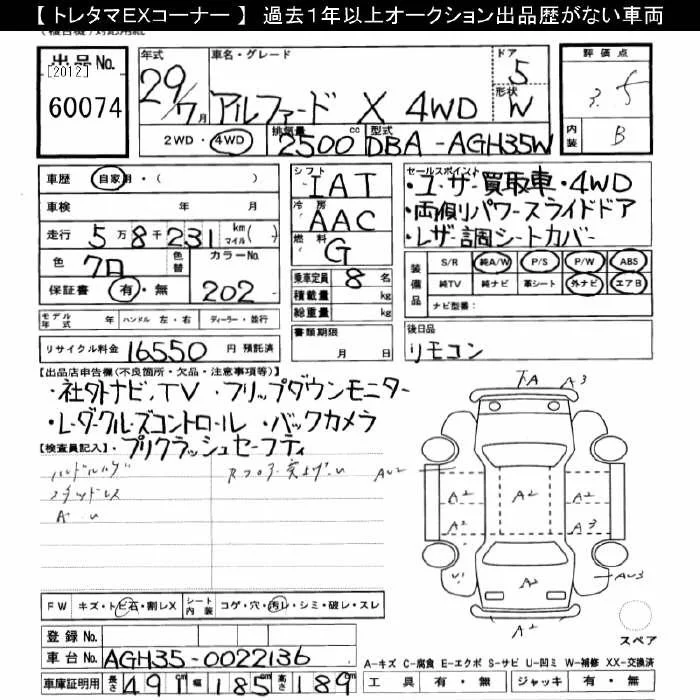 【 トレタマEXコーナー 】 過去1年以上オークション出品歴がない車両
出品No.
[2012]
60074
年式
29/7月
車名・グレード
アルファード X 4WD
ドア
5
形状
W
2WD・4WD
排気量
2500cc
型式
DBA-AGH35W
評価点
3.5
内装
B
車歴 自家用・( )
車検 年 月
走行 5万8千231 km マイル( )
色 クロ 色替 カラーNo. 202
保証書 有・無
シフト
IAT
冷房
AAC
燃料
G
乗車定員 8 名
積載量 kg
総重量 kg
書類期限
月 日
セールスポイント
・ユーザー買取車・4WD
・両側パワースライドドア
・レザー調シートカバー
装備品
S/R 純A/W P/S P/W ABS
純TV 純ナビ 革シート 外ナビ エアB
ナビ型番:
モデル年式 年 ハンドル 左・右 ディーラー・並行
リサイクル料金 16550 円 預託済
後日品
リモコン
【出品店申告欄(不良箇所・欠品・注意事項等)】
・社外ナビ、TV ・フリップダウンモニター
・レーダークルーズコントロール ・バックカメラ
・プリクラッシュセーフティ
【検査員記入】
下A A3
AU2
A2 A2 A2
A2 A3
U1 A2 AU3
A2
スペア
FW キズ・トビ石・割レX シート内装 コゲ・穴・汚レ・シミ・破レ・スレ
登録No.
車台No. AGH35-0022136
車庫証明用 長さ 491cm 幅 185cm 高さ 189cm
A-キズ C-腐食 E-エクボ S-サビ U-凹ミ W-補修 XX-交換済
工具 有・無 ジャッキ 有・無